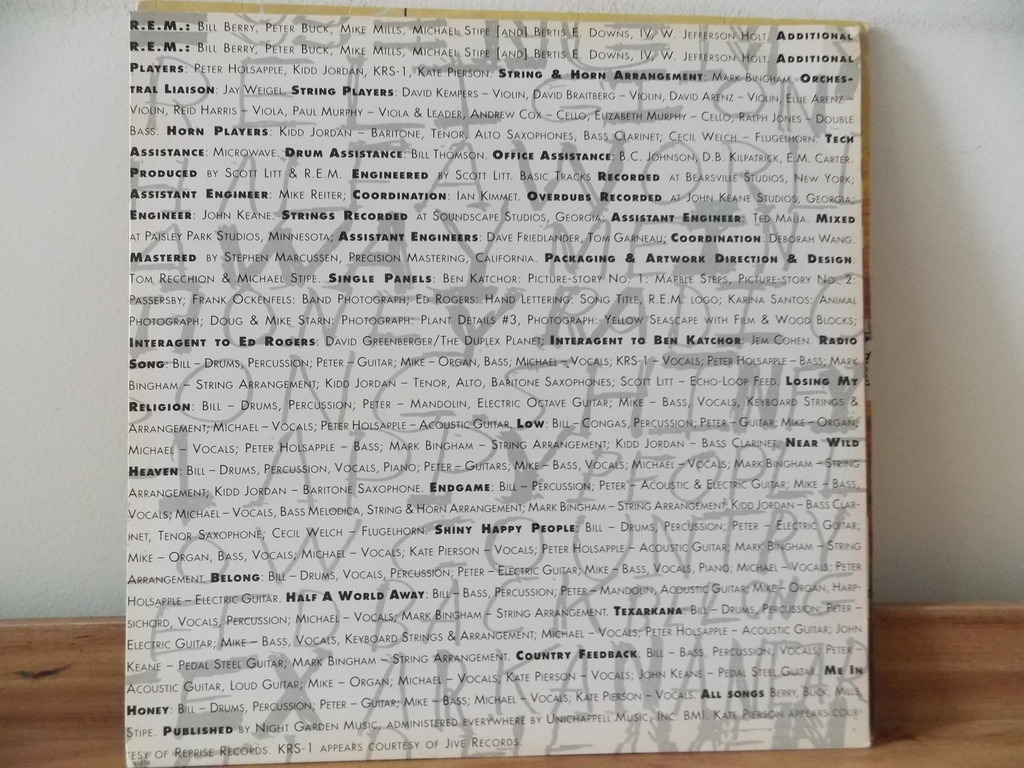 R.E.M.: Bill Berry, Peter Buck, Mike Mills, Michael Stipe [and] Bertis E. Downs, IV, W. Jefferson Holt. Additional
R.E.M.: Bill Berry, Peter Buck, Mike Mills, Michael Stipe [and] Bertis E. Downs, IV, W. Jefferson Holt. Additional
Players: Peter Holsapple, Kidd Jordan, KRS-1, Kate Pierson. String & Horn Arrangement: Mark Bingham. Orches-
tral Liaison: Jay Weigel. String Players: David Kempers – Violin, David Braitberg – Violin, David Arenz – Violin, Ellie Arenz –
Violin, Reid Harris – Viola, Paul Murphy – Viola & Leader, Andrew Cox – Cello, Elizabeth Murphy – Cello, Ralph Jones – Double
Bass. Horn Players: Kidd Jordan – Baritone, Tenor, Alto Saxophones, Bass Clarinet; Cecil Welch – Flugelhorn. Tech
Assistance: Microwave. Drum Assistance: Bill Thomson. Office Assistance: B.C. Johnson, D.B. Kilpatrick, E.M. Carter.
Produced by Scott Litt & R.E.M. Engineered by Scott Litt. Basic Tracks Recorded at Bearsville Studios, New York;
Assistant Engineer: Mike Reiter; Coordination: Ian Kimmet. Overdubs Recorded at John Keane Studios, Georgia;
Engineer: John Keane. Strings Recorded at Soundscape Studios, Georgia; Assistant Engineer: Ted Malia. Mixed
at Paisley Park Studios, Minnesota; Assistant Engineers: Dave Friedlander, Tom Garneau; Coordination: Deborah Wang.
Mastered by Stephen Marcussen, Precision Mastering, California. Packaging & Artwork Direction & Design:
Tom Recchion & Michael Stipe. Single Panels: Ben Katchor: Picture-story No. 1: Marble Steps, Picture-story No. 2:
Passersby; Frank Ockenfels: Band Photograph; Ed Rogers: Hand Lettering: Song Title, R.E.M. logo; Karina Santos: Animal
Photograph; Doug & Mike Starn: Photograph: Plant Details #3, Photograph: Yellow Seascape with Film & Wood Blocks;
Interagent to Ed Rogers: David Greenberger/The Duplex Planet; Interagent to Ben Katchor: Jem Cohen. Radio
Song: Bill – Drums, Percussion; Peter – Guitar; Mike – Organ, Bass; Michael – Vocals; KRS-1 – Vocals; Peter Holsapple – Bass; Mark
Bingham – String Arrangement; Kidd Jordan – Tenor, Alto, Baritone Saxophones; Scott Litt – Echo-Loop Feed. Losing My
Religion: Bill – Drums, Percussion; Peter – Mandolin, Electric Octave Guitar; Mike – Bass, Vocals, Keyboard Strings &
Arrangement; Michael – Vocals; Peter Holsapple – Acoustic Guitar. Low: Bill – Congas, Percussion; Peter – Guitar; Mike – Organ;
Michael – Vocals; Peter Holsapple – Bass; Mark Bingham – String Arrangement; Kidd Jordan – Bass Clarinet. Near Wild
Heaven: Bill – Drums, Percussion, Vocals, Piano; Peter – Guitars; Mike – Bass, Vocals; Michael – Vocals; Mark Bingham – String
Arrangement; Kidd Jordan – Baritone Saxophone. Endgame: Bill – Percussion; Peter – Acoustic & Electric Guitar; Mike – Bass,
Vocals; Michael – Vocals, Bass Melodica, String & Horn Arrangement; Mark Bingham – String Arrangement; Kidd Jordan – Bass Clar-
inet, Tenor Saxophone; Cecil Welch – Flugelhorn. Shiny Happy People: Bill – Drums, Percussion; Peter – Electric Guitar;
Mike – Organ, Bass, Vocals; Michael – Vocals; Kate Pierson – Vocals; Peter Holsapple – Acoustic Guitar; Mark Bingham – String
Arrangement. Belong: Bill – Drums, Vocals, Percussion; Peter – Electric Guitar; Mike – Bass, Vocals, Piano; Michael – Vocals; Peter
Holsapple – Electric Guitar. Half A World Away: Bill – Bass, Percussion; Peter – Mandolin, Acoustic Guitar; Mike – Organ, Harp-
sichord, Vocals, Percussion; Michael – Vocals; Mark Bingham – String Arrangement. Texarkana: Bill – Drums, Percussion; Peter –
Electric Guitar; Mike – Bass, Vocals, Keyboard Strings & Arrangement; Michael – Vocals; Peter Holsapple – Acoustic Guitar; John
Keane – Pedal Steel Guitar; Mark Bingham – String Arrangement. Country Feedback: Bill – Bass, Percussion, Vocals; Peter –
Acoustic Guitar, Loud Guitar; Mike – Organ; Michael – Vocals; Kate Pierson – Vocals; John Keane – Pedal Steel Guitar. Me In
Honey: Bill – Drums, Percussion; Peter – Guitar; Mike – Bass; Michael – Vocals; Kate Pierson – Vocals. All songs Berry, Buck, Mills,
Stipe. Published by Night Garden Music, administered everywhere by Unichappell Music, Inc. BMI. Kate Pierson appears cour-
tesy of Reprise Records. KRS-1 appears courtesy of Jive Records.